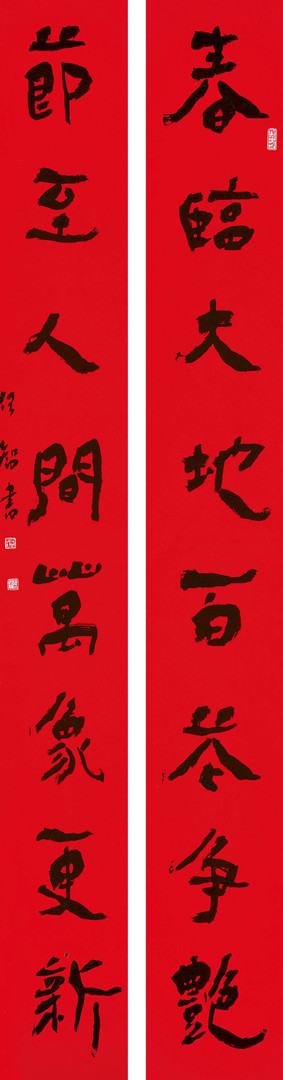 春臨大地百花争艷
節至人間萬象更新
智書